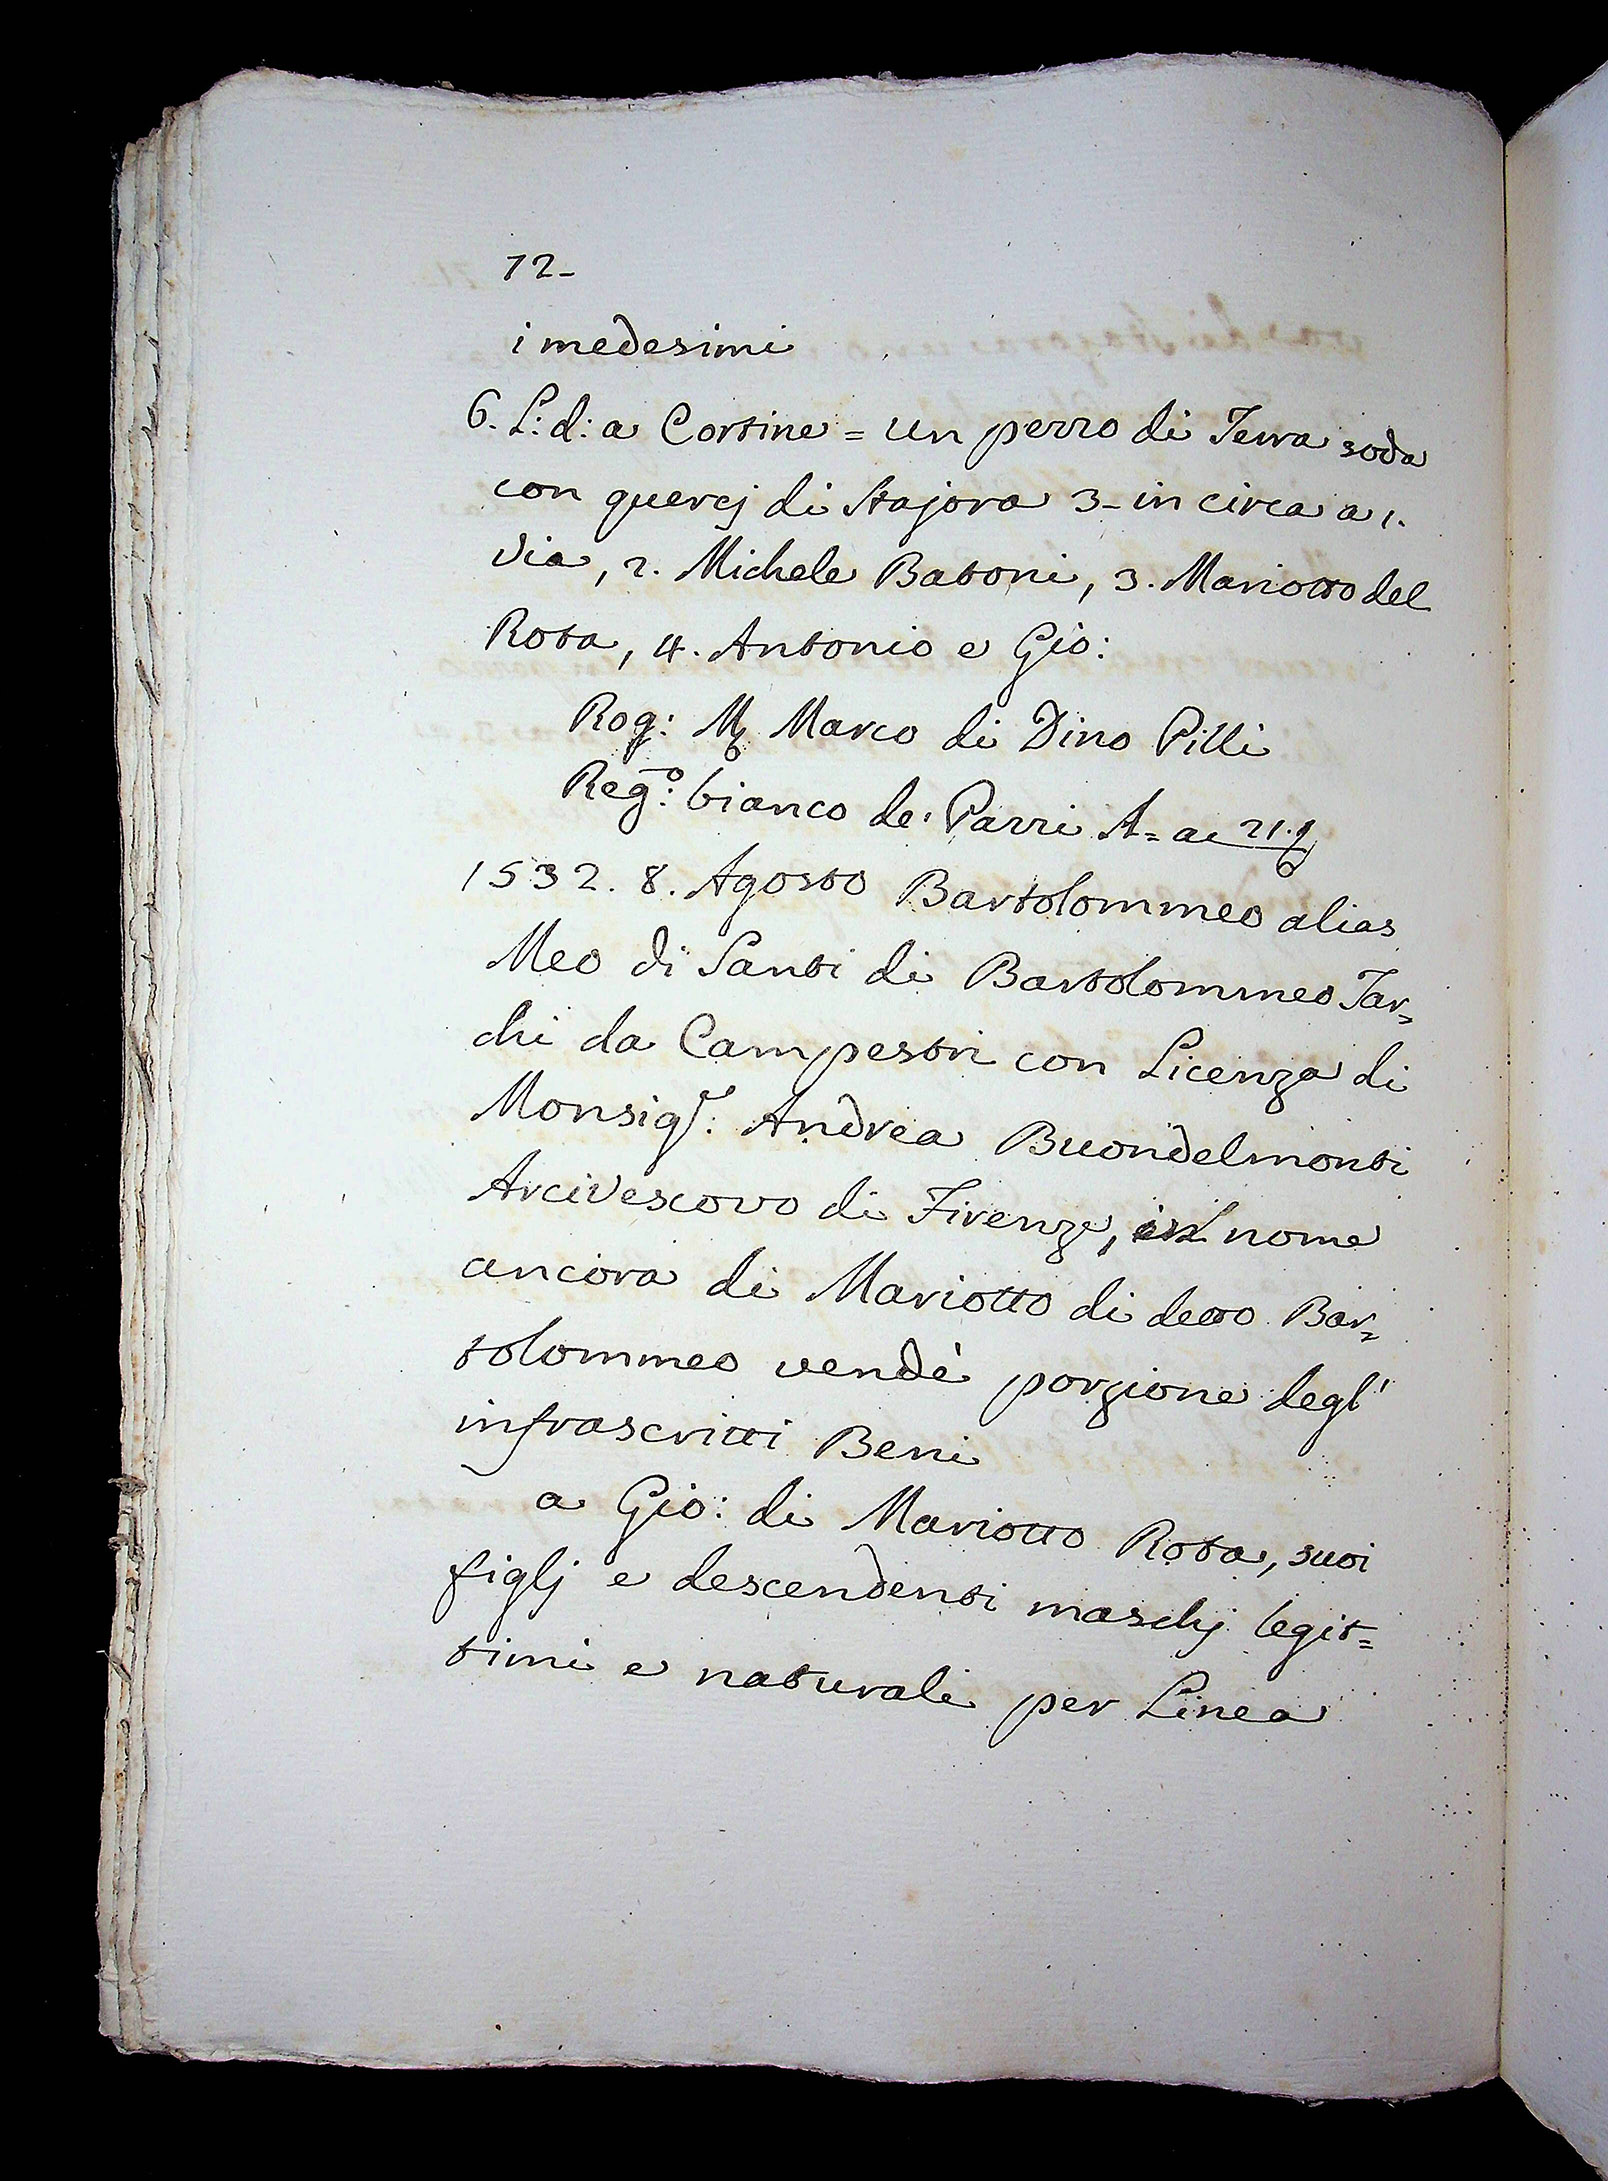 72-
i medesimi
6. L: d: a Cortine = un pezzo di Terra soda
con quercj di Stajora 3- in circa a 1.
via, 2. Michele Batoni, 3. Mariotto del
Rota, 4. Antonio e Gio:
Rog: Mr Marco di Dino Pilli
Reg.o: bianco de' Pazzi A= a 21.
1532. 8. Agosto Bartolommeo alias
Meo di Santi di Bartolommeo Tar=
chi da Campestri con Licenza di
Monsigr: Andrea Buondelmonti
Arcivescovo di Firenze, in nome
ancora di Mariotto di detto Bar=
tolommeo vendè porzione degl'
infrascritti Beni
a Gio: di Mariotto Rota, suoi
figlj e descendenti maschj legit=
timi e naturali per Linea